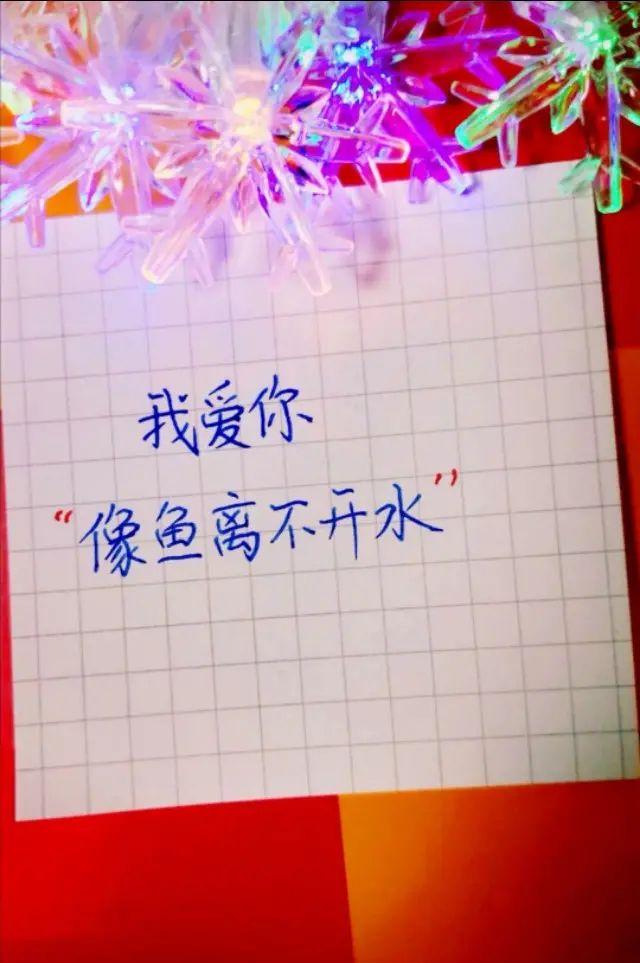 我爱你
“像鱼离不开水”